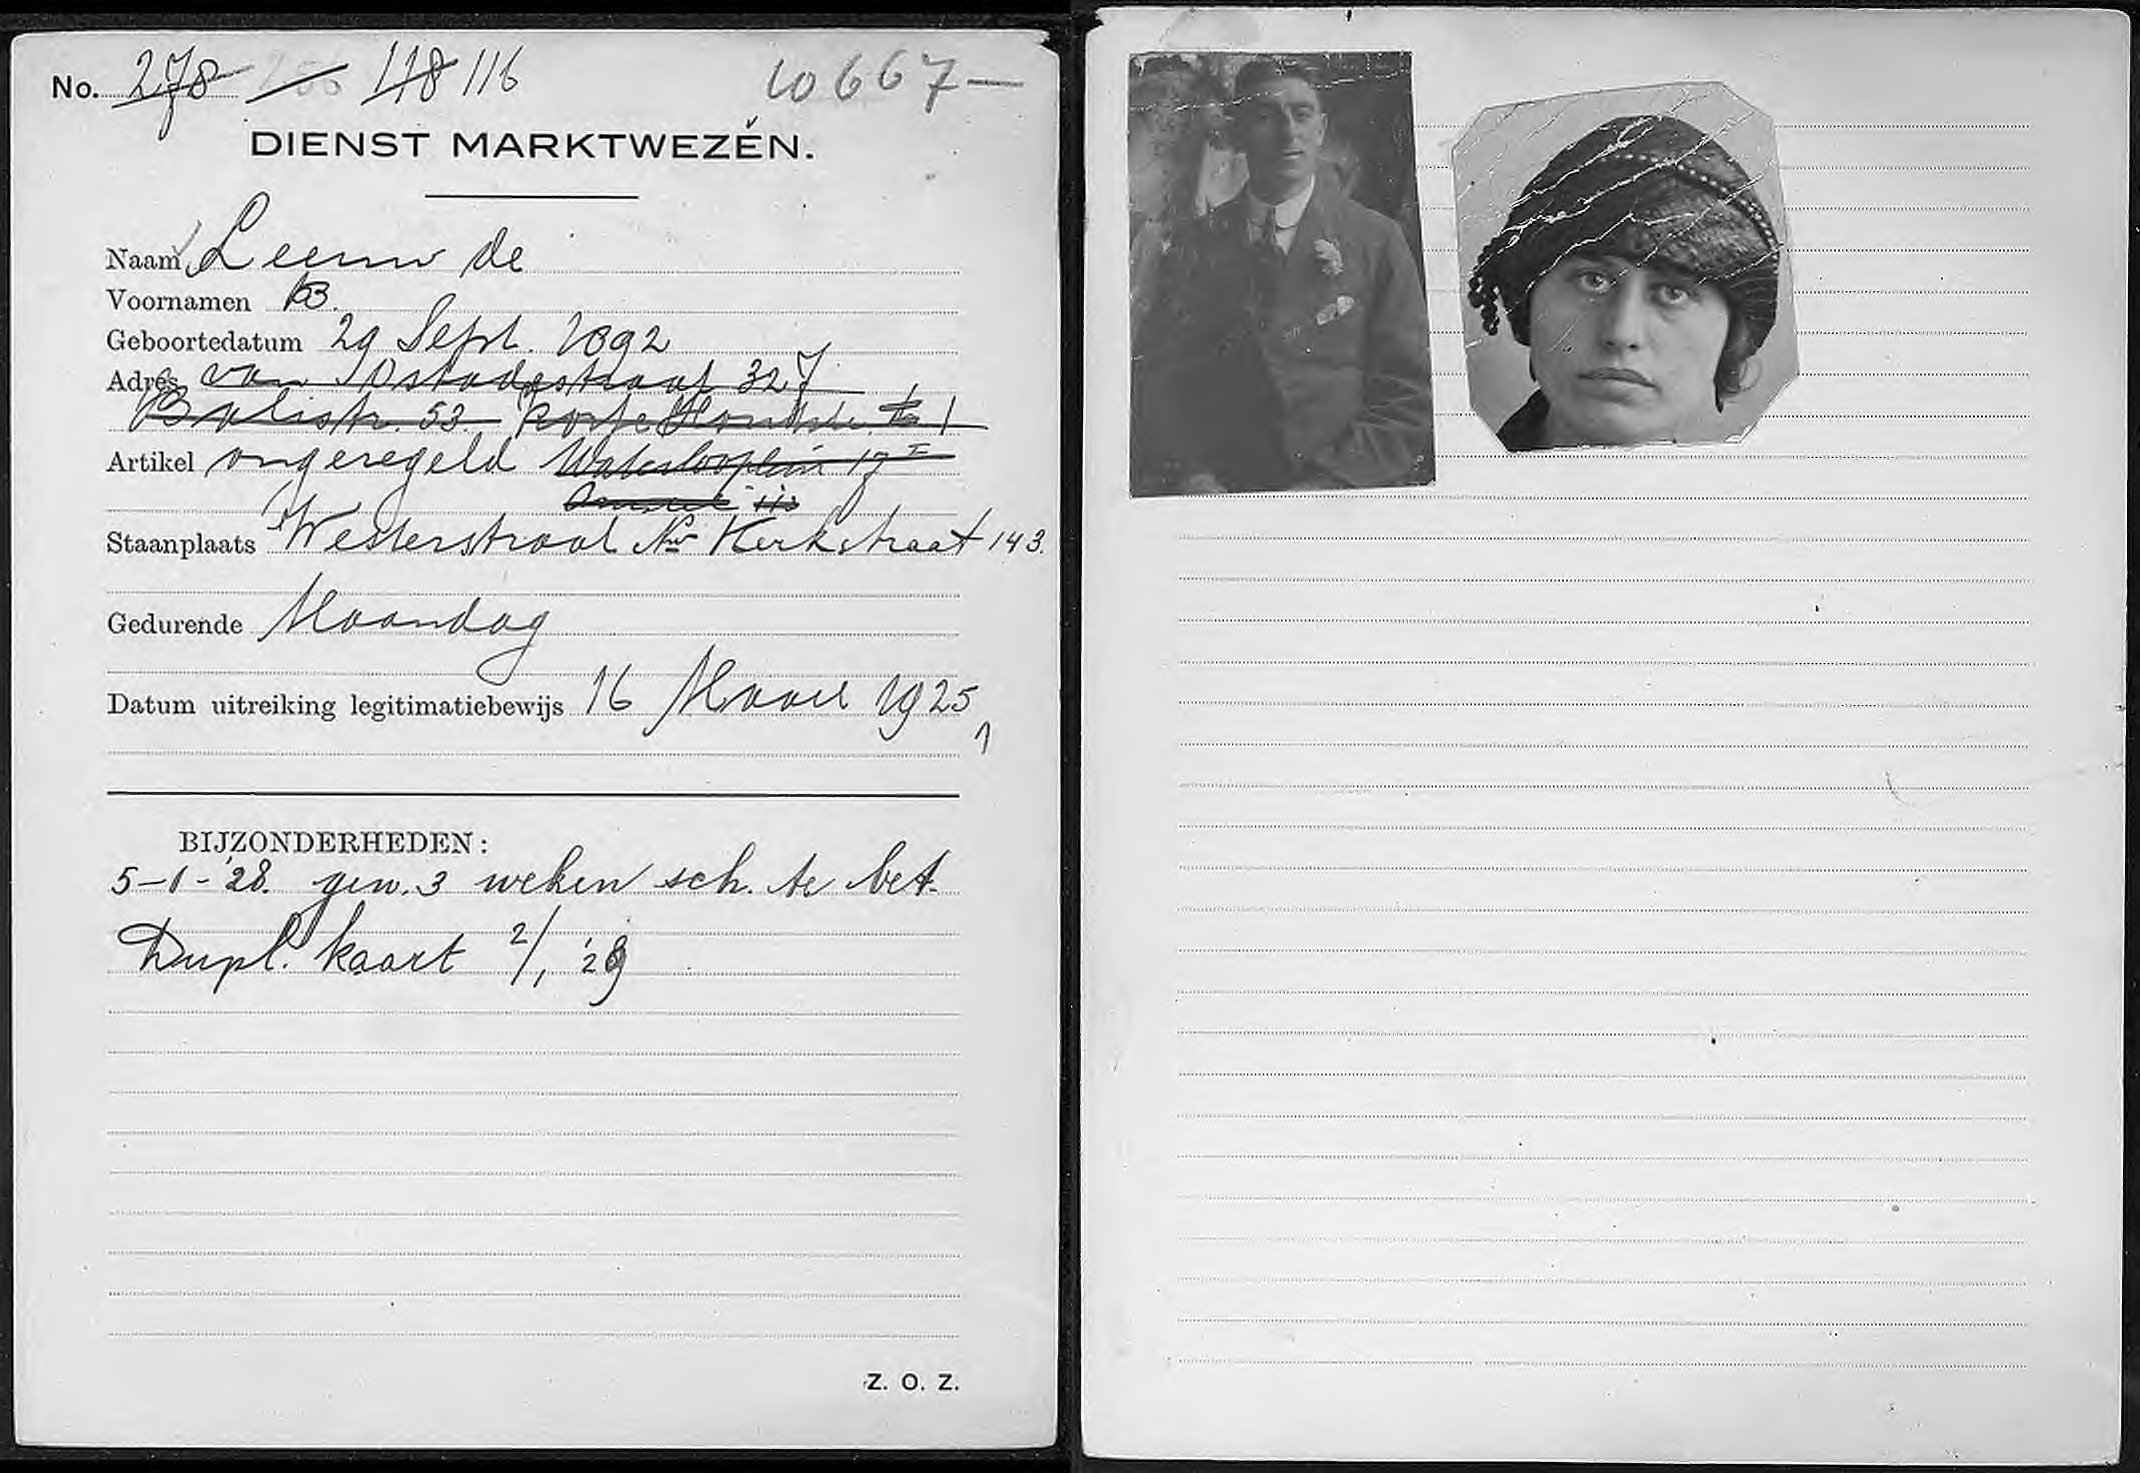 No. 278 118 116 10667—
DIENST MARKTWEZEN.
Naam Leeuw de
Voornamen B.
Geboortedatum 29 Sept. 1892
Adres van Ostadestraat 327
Balistr. 53 Korte Houtstr. 1
Artikel ongeregeld Waterlooplein 17 I
Staanplaats Westerstraat Nwe Kerkstraat 143.
Gedurende Maandag
Datum uitreiking legitimatiebewijs 16 Maart 1925
BIJZONDERHEDEN:
5-1-'28. gew. 3 weken sch. te bet.
Dupl. kaart 2/1 '29
Z. O. Z.